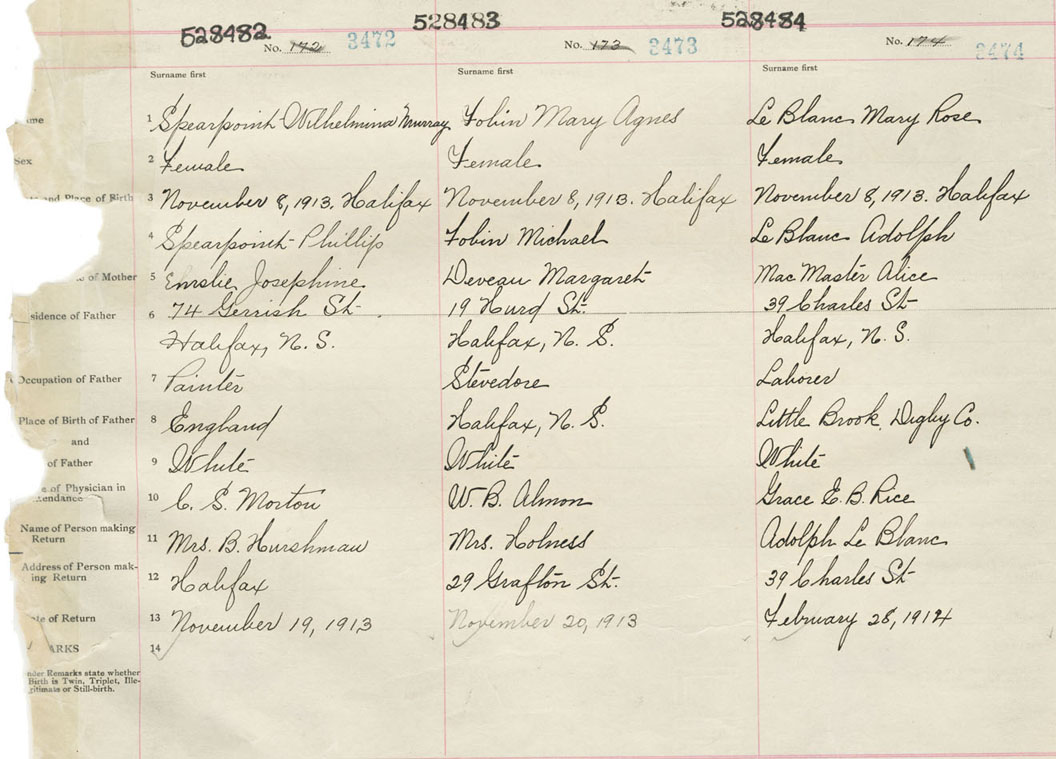 528482 528483 528484
No. 172 3472 No. 173 3473 No. 174 3474
Surname first Surname first Surname first
me 1 Spearpoint Wilhelmina Murray Tobin Mary Agnes Le Blanc Mary Rose
Sex 2 Female Female Female
and Place of Birth 3 November 8, 1913. Halifax November 8, 1913. Halifax November 8, 1913. Halifax
4 Spearpoint Phillip Tobin Michael Le Blanc Adolph
of Mother 5 Emslie Josephine Deveau Margaret Mac Master Alice
sidence of Father 6 74 Gerrish St. 19 Hurd St. 39 Charles St.
Halifax, N. S. Halifax, N. S. Halifax, N. S.
Occupation of Father 7 Painter Stevedore Laborer
Place of Birth of Father 8 England Halifax, N. S. Little Brook, Digby Co.
and
of Father 9 White White White
e of Physician in
tendance 10 C. S. Morton W. B. Almon Grace E. B. Rice
Name of Person making
Return 11 Mrs. B. Hurshman Mrs. Holness Adolph Le Blanc
Address of Person mak-
ing Return 12 Halifax 29 Grafton St. 39 Charles St
ate of Return 13 November 19, 1913 November 20, 1913 February 28, 1914
ARKS 14
nder Remarks state whether
Birth is Twin, Triplet, Ille-
gitimate or Still-birth.